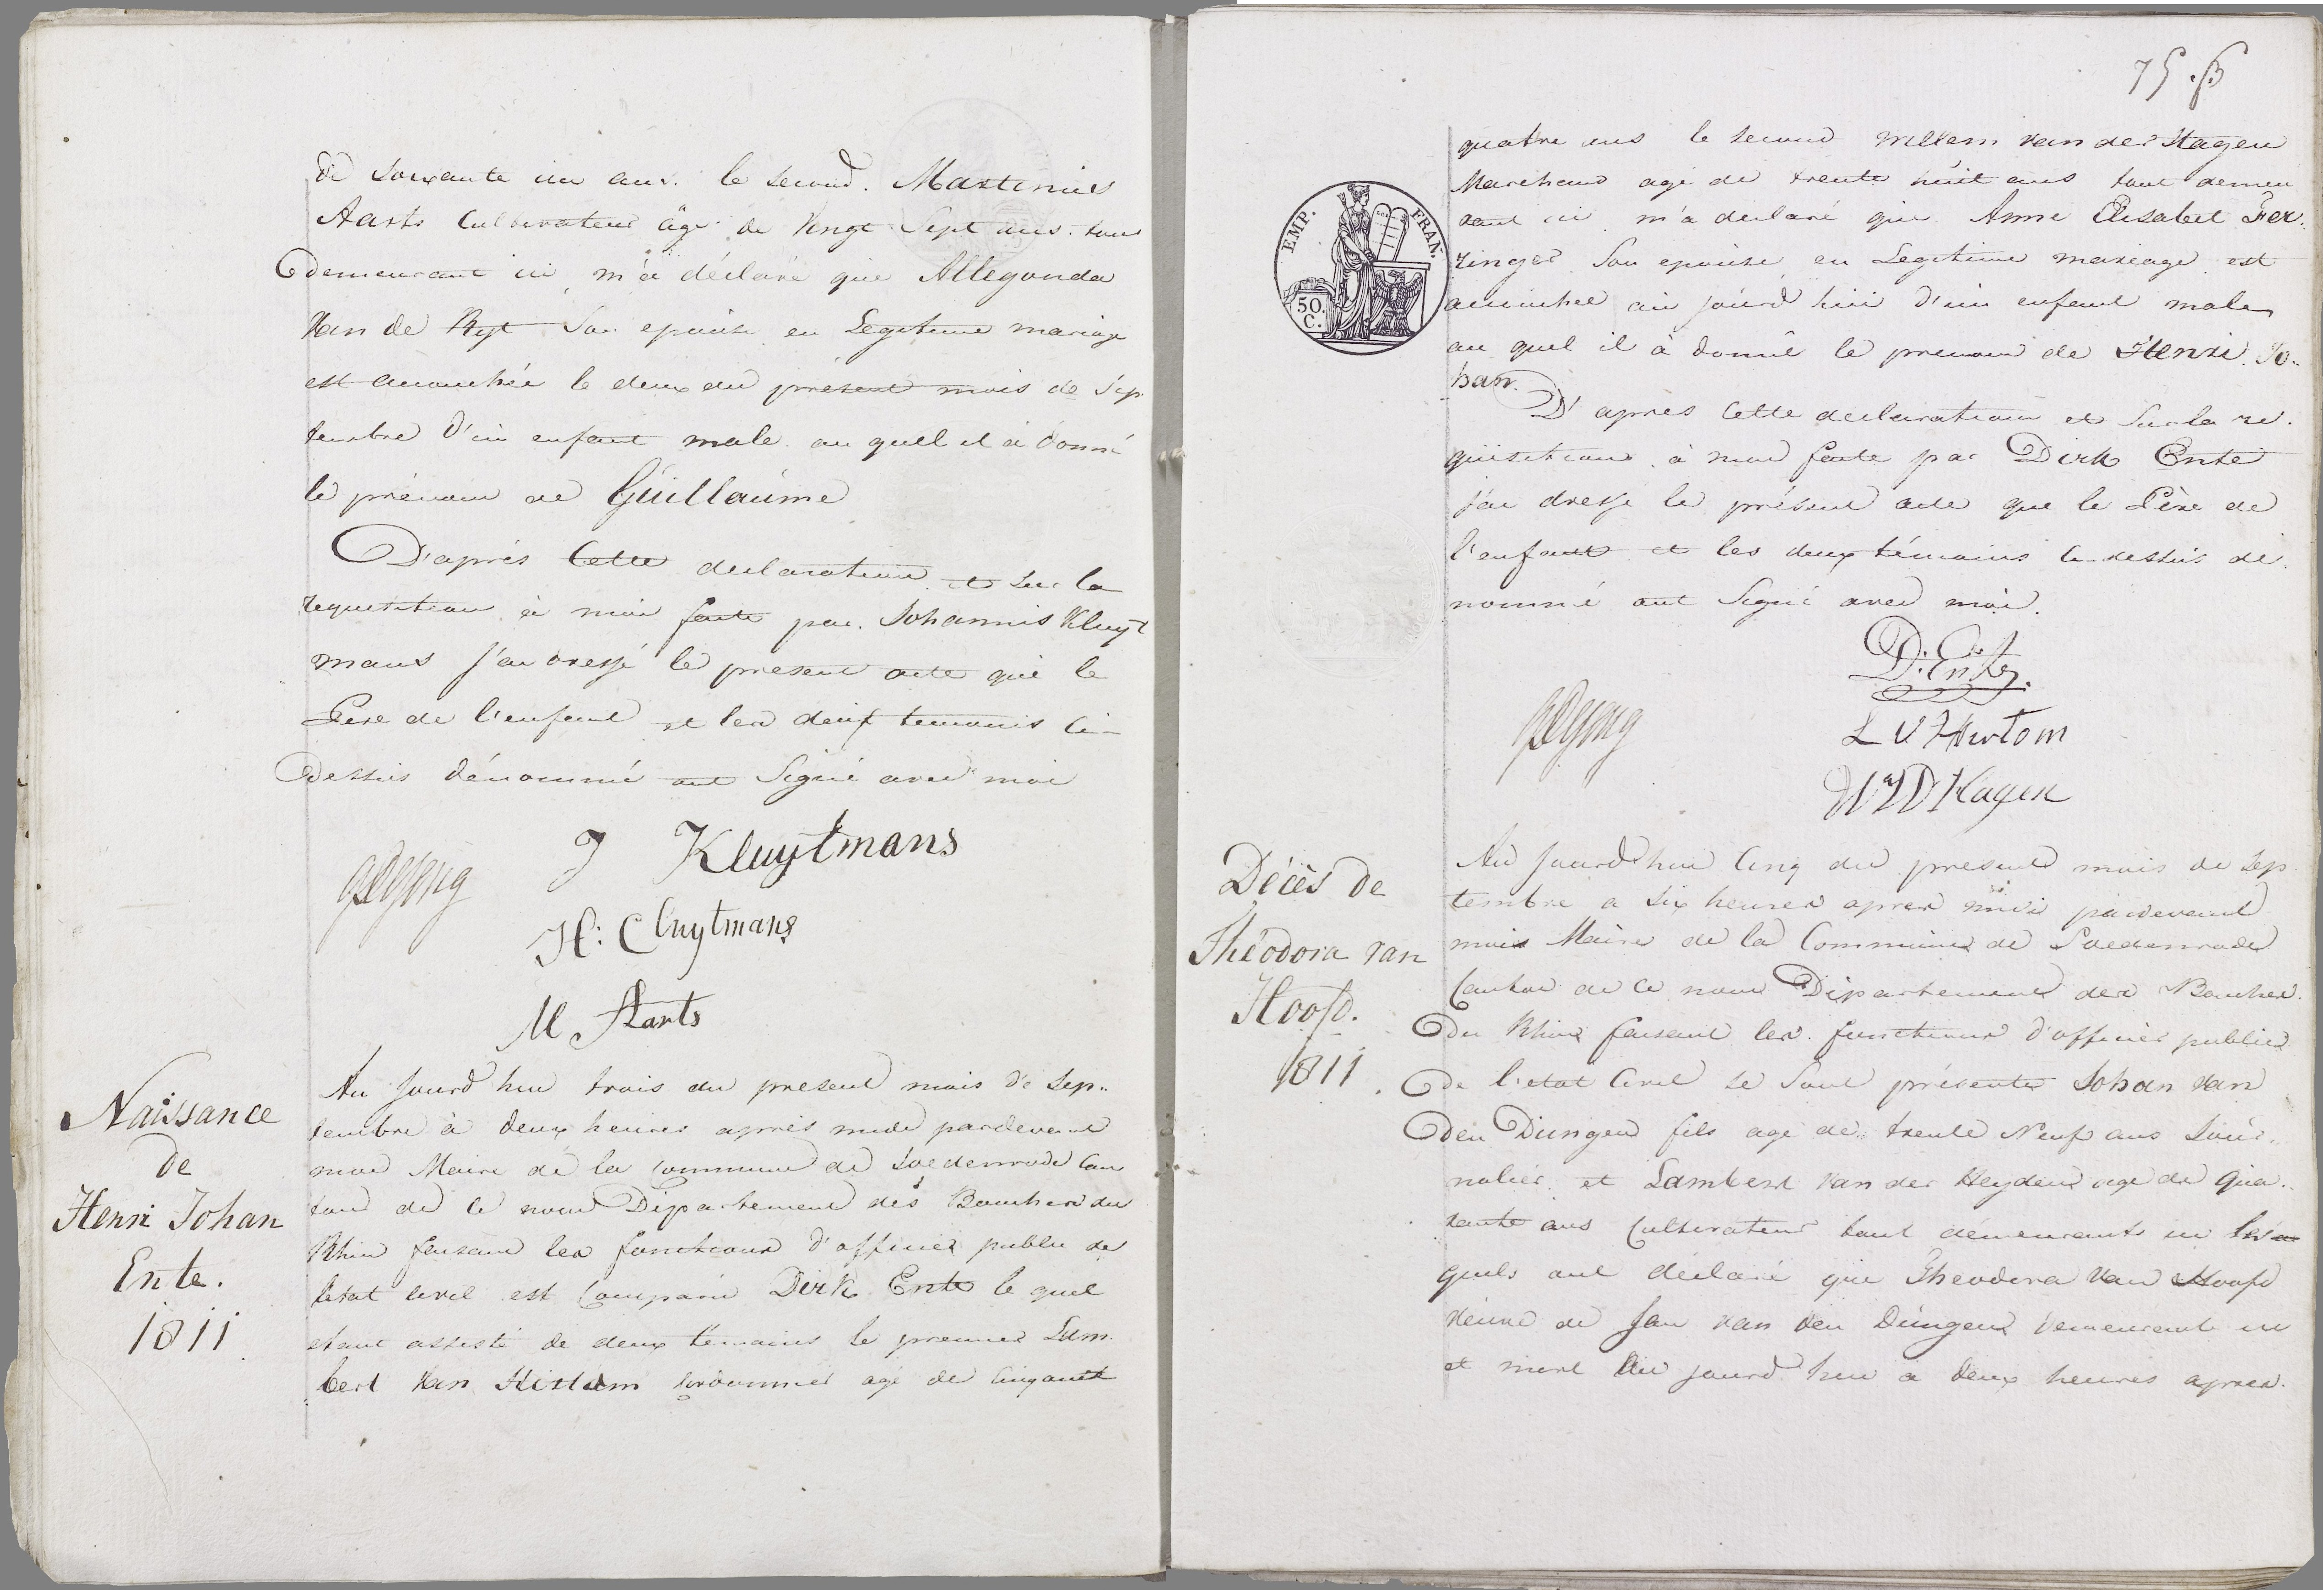 de soixante un ans. le second. Martinus
Aarts Cultivateur âge de Vingt Sept ans. tous
demeurant ici, m'a déclaré que Allegonda
Van de Ryt Son epouse en Legitime mariage
est accouchée le deux du présent mois de Sep
tembre d'un enfant male au quel il a donné
le prénom de Guillaume
D'aprés Cette declaration et sur la
requisition à moi faite par Johannis Kluyt
mans j'ai dressé le present acte que le
Pere de l'enfant et les deux temoins Ci-
dessus dénommé ont Signé avec moi
J Kluytmans
H: Cluytmans
M Aarts
Naissance
de
Henri Johan
Ente.
1811
Au jourd'hui trois du present mois de Sep..
tembre à deux heures après midi pardevant
moi Maire de la commune de Soedenrode Can
ton de ce nom Département des Bouches du
Rhin faisant les fonctions d'officier public de
l'etat civil est Comparu Dirk Ente le quel
etant assisté de deux témoins le premier Lam
bert Van agé de Cinquant
75.
quatre ans le second Willem van der Hagen
Marchand agé de trente huit ans tout demeu
rant ici m'a declaré que Anne Elisabet Fer..
ringer Son epouse en Legitime mariage est
accouchee au jourd'hui d'un enfant male
au quel il à donnê le prenom de Henri Jo..
han.
EMP. FRAN.
50. C.
D'après Cette declaration et Sur la re.
quisition à moi faite par Dirk Ente
j'ai dressé le présent acte que le Père de
l'enfant et les deux témoins Ci-dessus dé.
nommé ont Signé avec moi.
D: Ente.
L V Hirtom
Wm VD Hagen
Décès de
Théodora van
Hoofd.
1811.
Au jourd'hui Cinq du present mois de Sep
tembre a six heures apres midi pardevant
moi Maire de la Commune de Soedenrode
Canton de ce nom Département des Bouches
Du Rhin faisant les fonctions d'officier public
De l'etat Civil se Sont présentés Johan van
den Dungen fils agé de trente Neuf ans Jour..
nalier et Lambert van der Heyden agé de Qua..
rante ans Cultivateur tout démeurants ici les
quels ont déclaré que Theodora van Hoofd
véuve de Jan van den Dungen demeurante ici
et mort Au jourd'hui a deux heures apres.